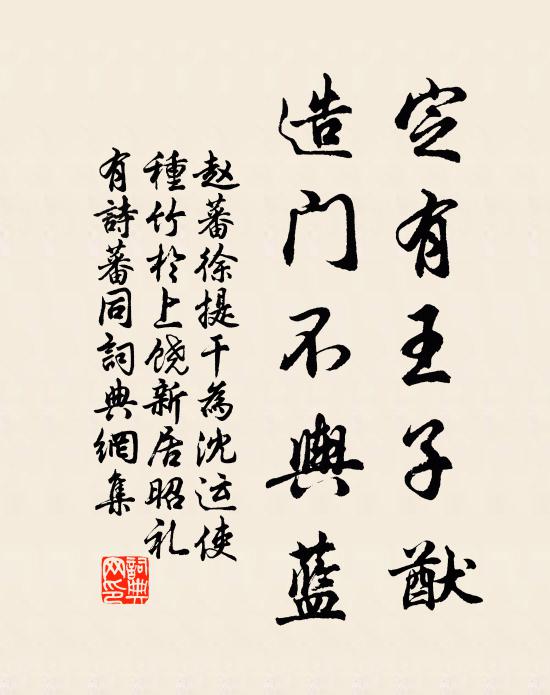 定有王子猷
造门不舆蓝
赵蕃徐提干为沈运使
種竹於上饶新居昭礼
有詩蕃同詞典網集
詞典
网印